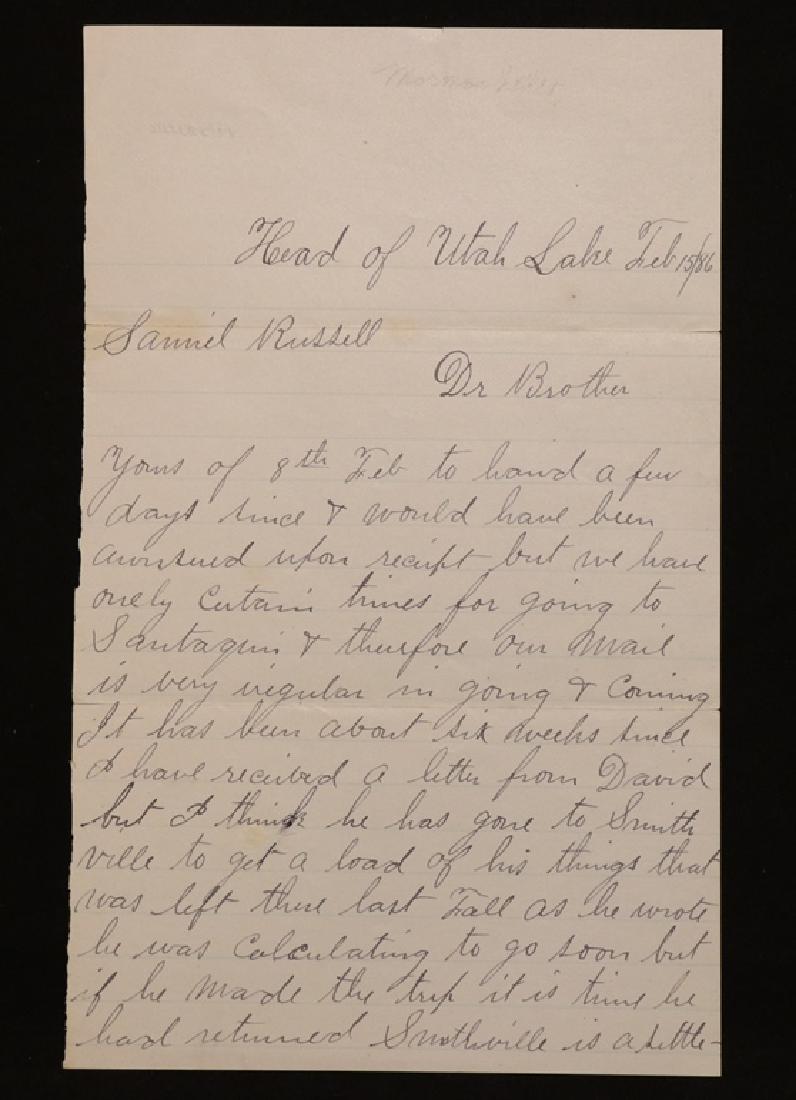 Head of Utah Lake Feb 15/86
Samuel Russell
Dr Brother
Yours of 8th Feb to hand a few
days since & would have been
awnsered upon reciept but we have
onely certain times for going to
Santaquin & therefore our Mail
is very iregular in going & Coming
It has been about six weeks since
I have recieved a letter from David
but I think he has gone to Smith
ville to get a load of his things that
was left there last Fall as he wrote
he was Calculating to go soon but
if he Made the trip it is time he
had returned Smithville is a Little-